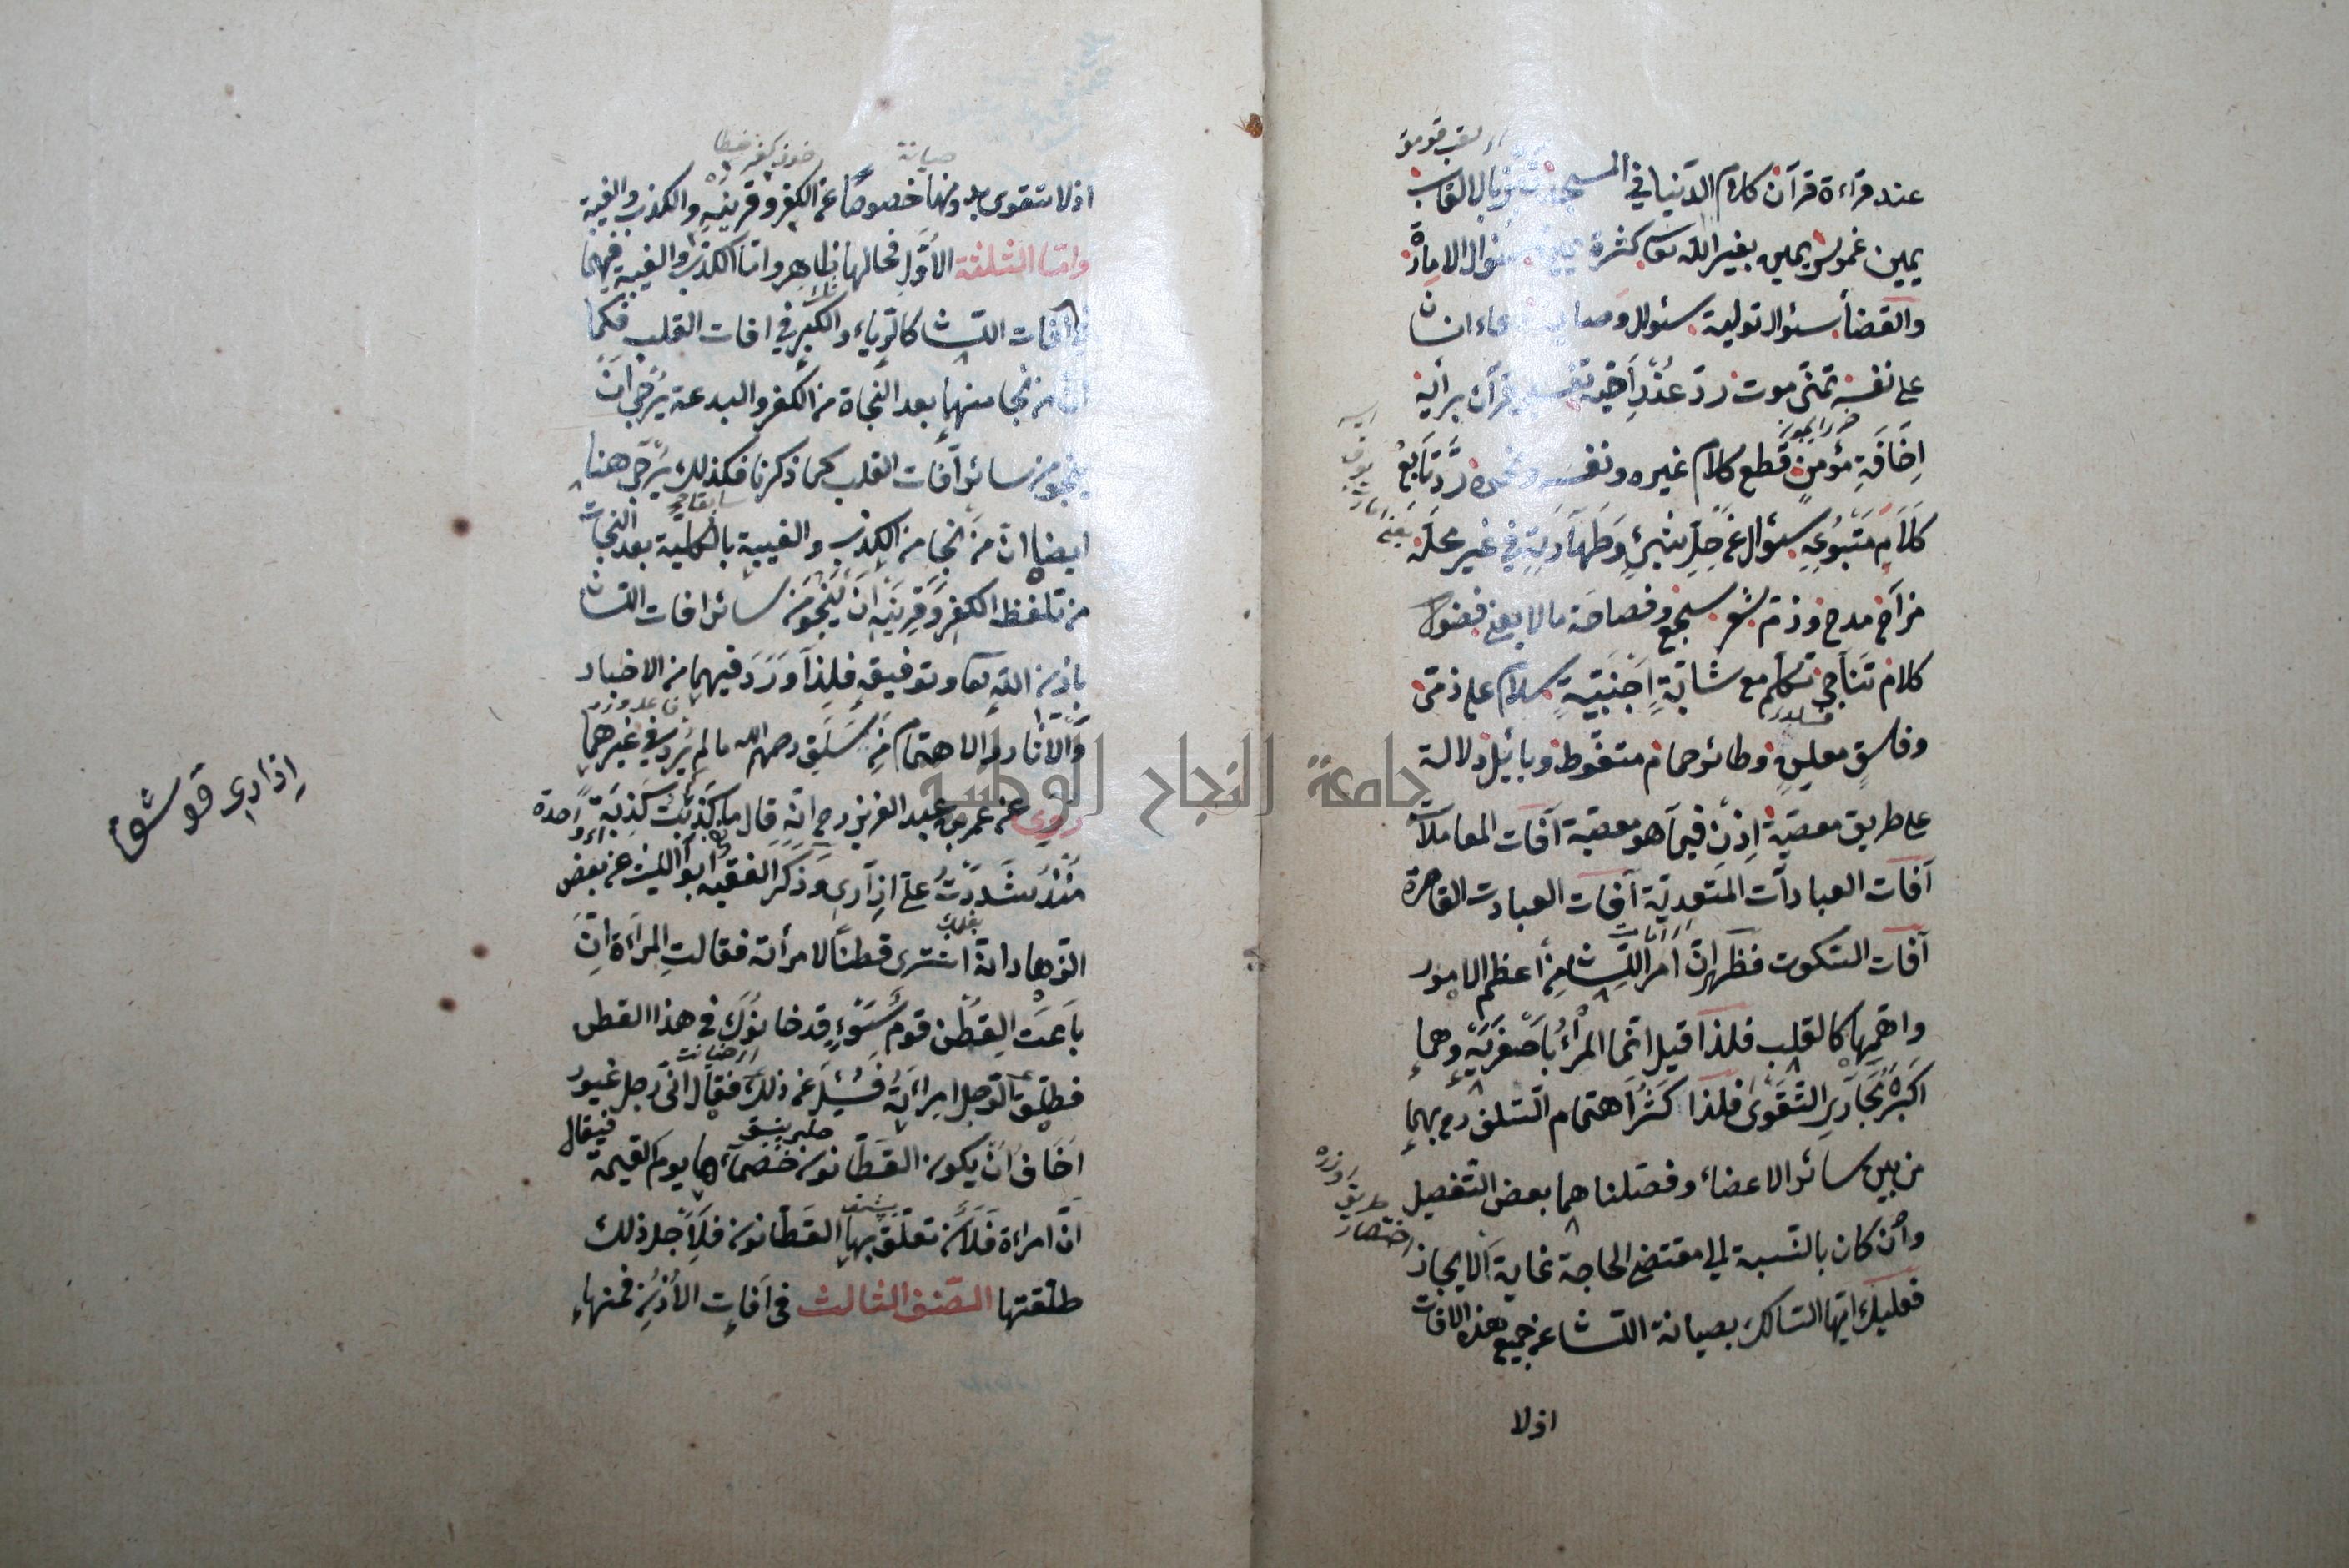 عند قراءة قرآن كلام الدنيا في المسجد بالالقاب
يمين غموس يمين بغير الله تعا كثرة يمين سئوال الامارة
والقضأ سئوال تولية سئوال وصاية دعاء انسان
على نفسه تمنى موت رد عذر اخيه تفسير قرآن برأيه
اخافة مؤمن قطع كلام غيره ونفسه ونحوه رد تابع
كلام متبوعه سئوال عن حل شئ وطهارته في غير محله
مزاح مدح وذم شعر سجع وفصاحة ما لا يعنى فضول
كلام تناجى تكلم مع شابة اجنبية سلام على ذمى
وفاسق معلن وطائر حمام متغوط وبائل دلالة
على طريق معصية اذن فيما هو معصية آفات المعاملات
آفات العبادات المتعدية آفات العبادت القاصرة
آفات السكوت فظهر ان امر اللسان من اعظم الامور
واهمها كالقلب فلذا قيل انما المرء باصغريه وهما
اكبر مجارى التقوى فلذا كثر اهتمام السلف رح بهما
من بين سائر الاعضاء وفصلناهما بعض التفصيل
وان كان بالنسبة الى مقتضى الحاجة غاية الايجاز
فعليك ايها السالك بصيانة اللسان عن جميع هذه الافات
اذلا
اذلا تتقوى بدونها خصوصًا عن الكفر وقرينيه والكذب والغيبة
وامّا الثلثة الأول فحالها ظاهر وامّا الكذب والغيبة فهما
في آفات اللسان كالرياء والكبر في افات القلب فكما
ان من نجا منها بعد النجاة من الكفر والبدعة يرجى ان
ينجو من سائر آفات القلب كما ذكرنا فكذلك يرجى هنا
ايضا ان من نجا من الكذب والغيبة بالكلية بعد النجات
من تلفظ الكفر وقرينيه ان ينجو من سائر افات اللسان
باذن الله تعا وتوفيقه فلذا ورد فيهما من الاخبار
والآثار والاهتمام من سلف رحمهم الله مالم يرد في غيرهما
روى عن عمر بن عبد العزيز رح انه قال ما كذبت كذبة واحدة
منذ شددت على ازارى وذكر الفقيه ابو الليث عن بعض
الزهاد انه اشترى قطنًا لامرأته فقالت المرأة انّ
باعت القطن قوم سوء قد خانوك في هذا القطن
فطلق الرجل امرأته فسئل عن ذلك فقال انى رجل غيور
اخاف ان يكون القطانون خصماءها يوم القيمة فيقال
ان امراة فلان تعلق بها القطانون فلأجل ذلك
طلقتها الصنف الثالث في آفات الأذن فمنها
اذارى قوشق